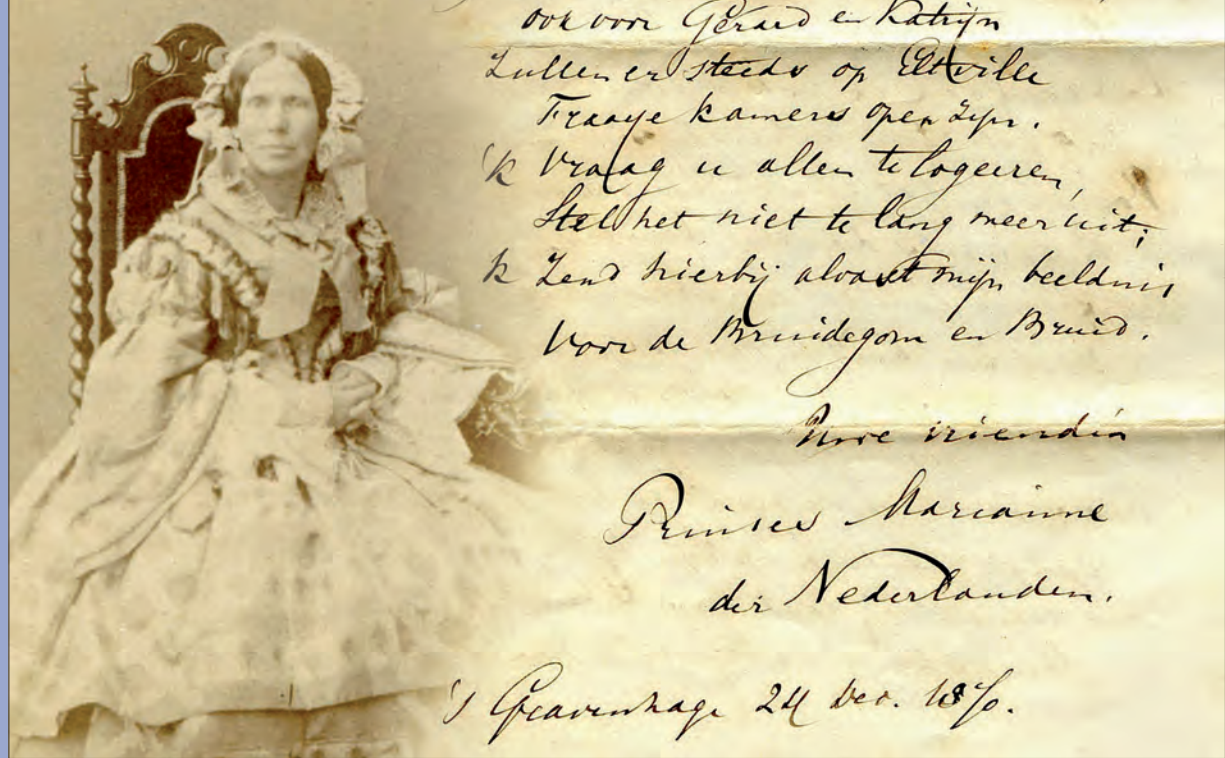 ook voor Gerard en Katrijn
Zullen er steeds op Eltville
Fraaye kamers open zijn.
'k Vraag u allen te logeeren,
Stel het niet te lang meer uit;
'k Zend hierbij alvast mijn beeldnis
Voor de Bruidegom en Bruid.
Uwe vriendin
Prinses Marianne
der Nederlanden.
's Gravenhage 24 Dec.